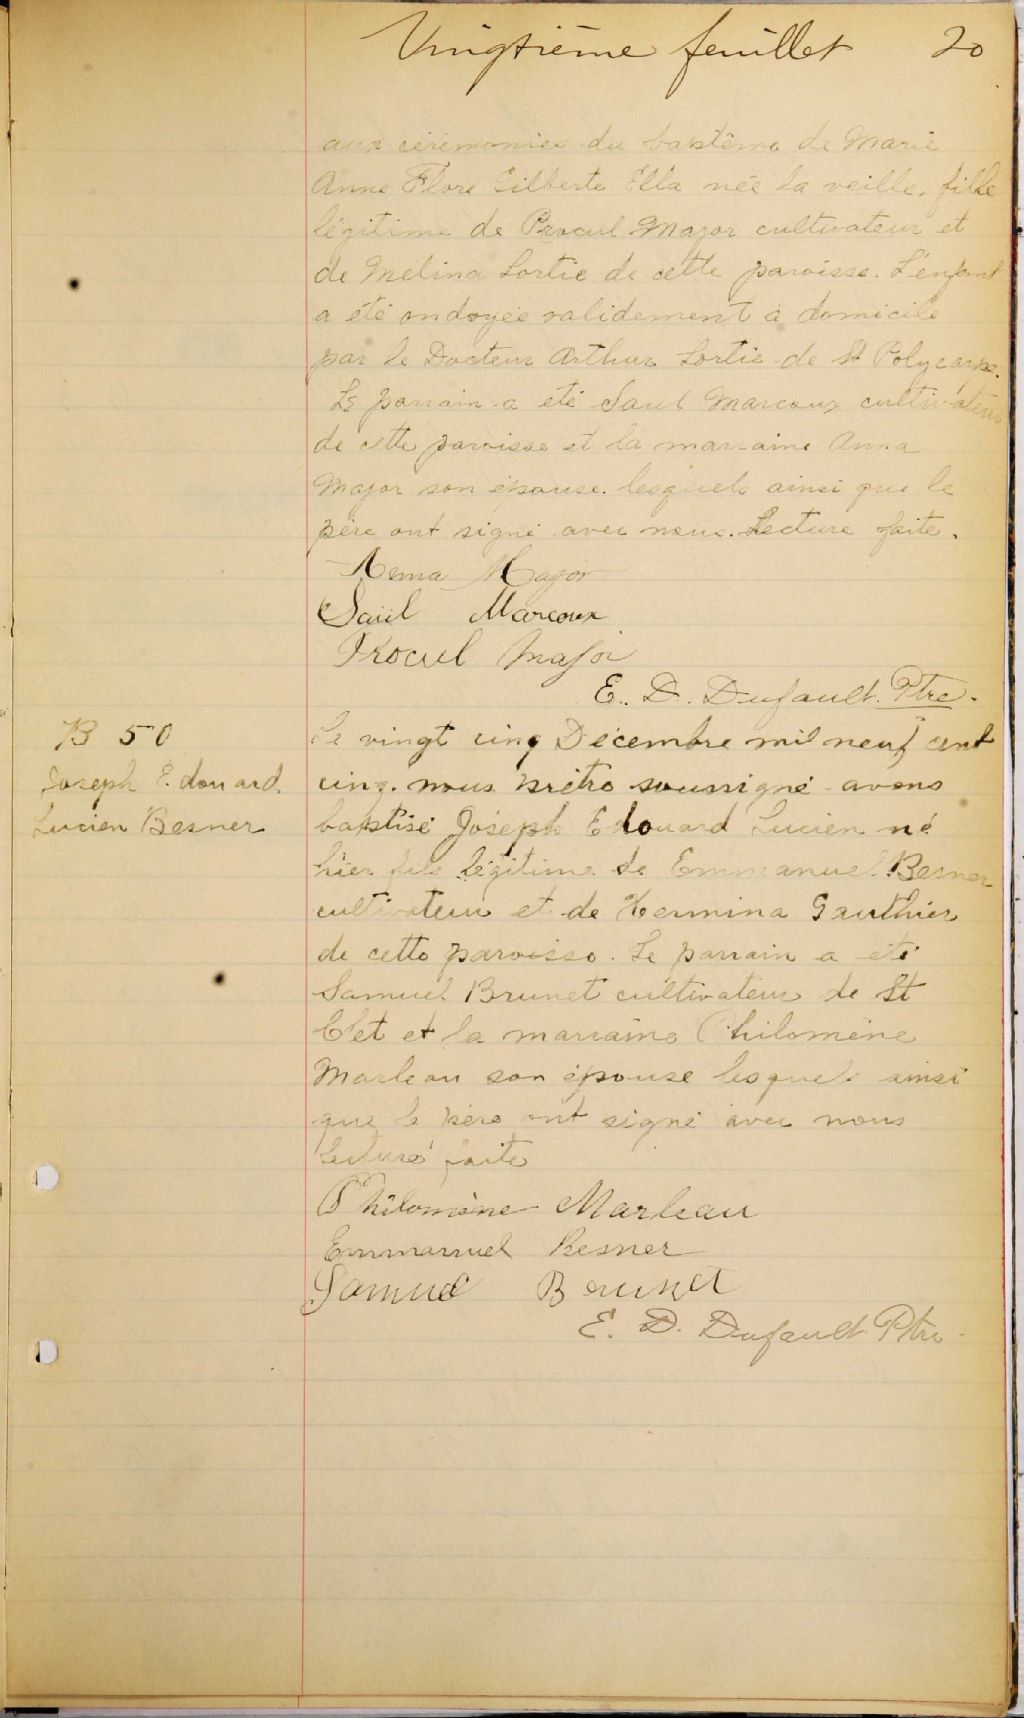 Vingtième feuillet 20
aux cérémonies du baptême de Marie
Anne Flore Gilberte Ella née la veille, fille
légitime de Procul Major cultivateur et
de Mélina Lortie de cette paroisse. L'enfant
a été ondoyée validement à domicile
par le Docteur Arthur Lortie de St Polycarpe.
Le parrain a été Saul Marcoux cultivateur
de cette paroisse et la marraine Anna
Major son épouse. lesquels ainsi que le
père ont signé avec nous. Lecture faite.
Anna Major
Saül Marcoux
Procul Major
E. D. Dufault Ptre.
B 50
Joseph Edouard
Lucien Besner
Le vingt cinq Décembre mil neuf cent
cinq. nous prêtre soussigné avons
baptisé Joseph Edouard Lucien né
hier fils légitime de Emmanuel Besner
cultivateur et de Hermina Gauthier
de cette paroisse. Le parrain a été
Samuel Brunet cultivateur de St
Clet et la marraine Philomène
Marleau son épouse lesquels ainsi
que le père ont signé avec nous
lecture faite
Philomène Marleau
Emmanuel Besner
Samuel Brunet
E. D. Dufault Ptre